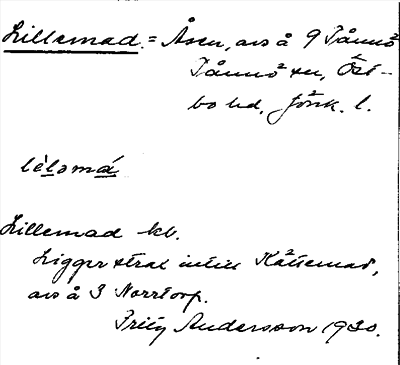 Lillemad. = Åsen, avs å 9 Tånnö
Tånnö sn, Öst-
bo hd, Jönk. l.
lèlomá
Lillemad kb.
Ligger strax intill Kättemad,
avs å 3 Norrtorp.
Fritz Andersson 1930.